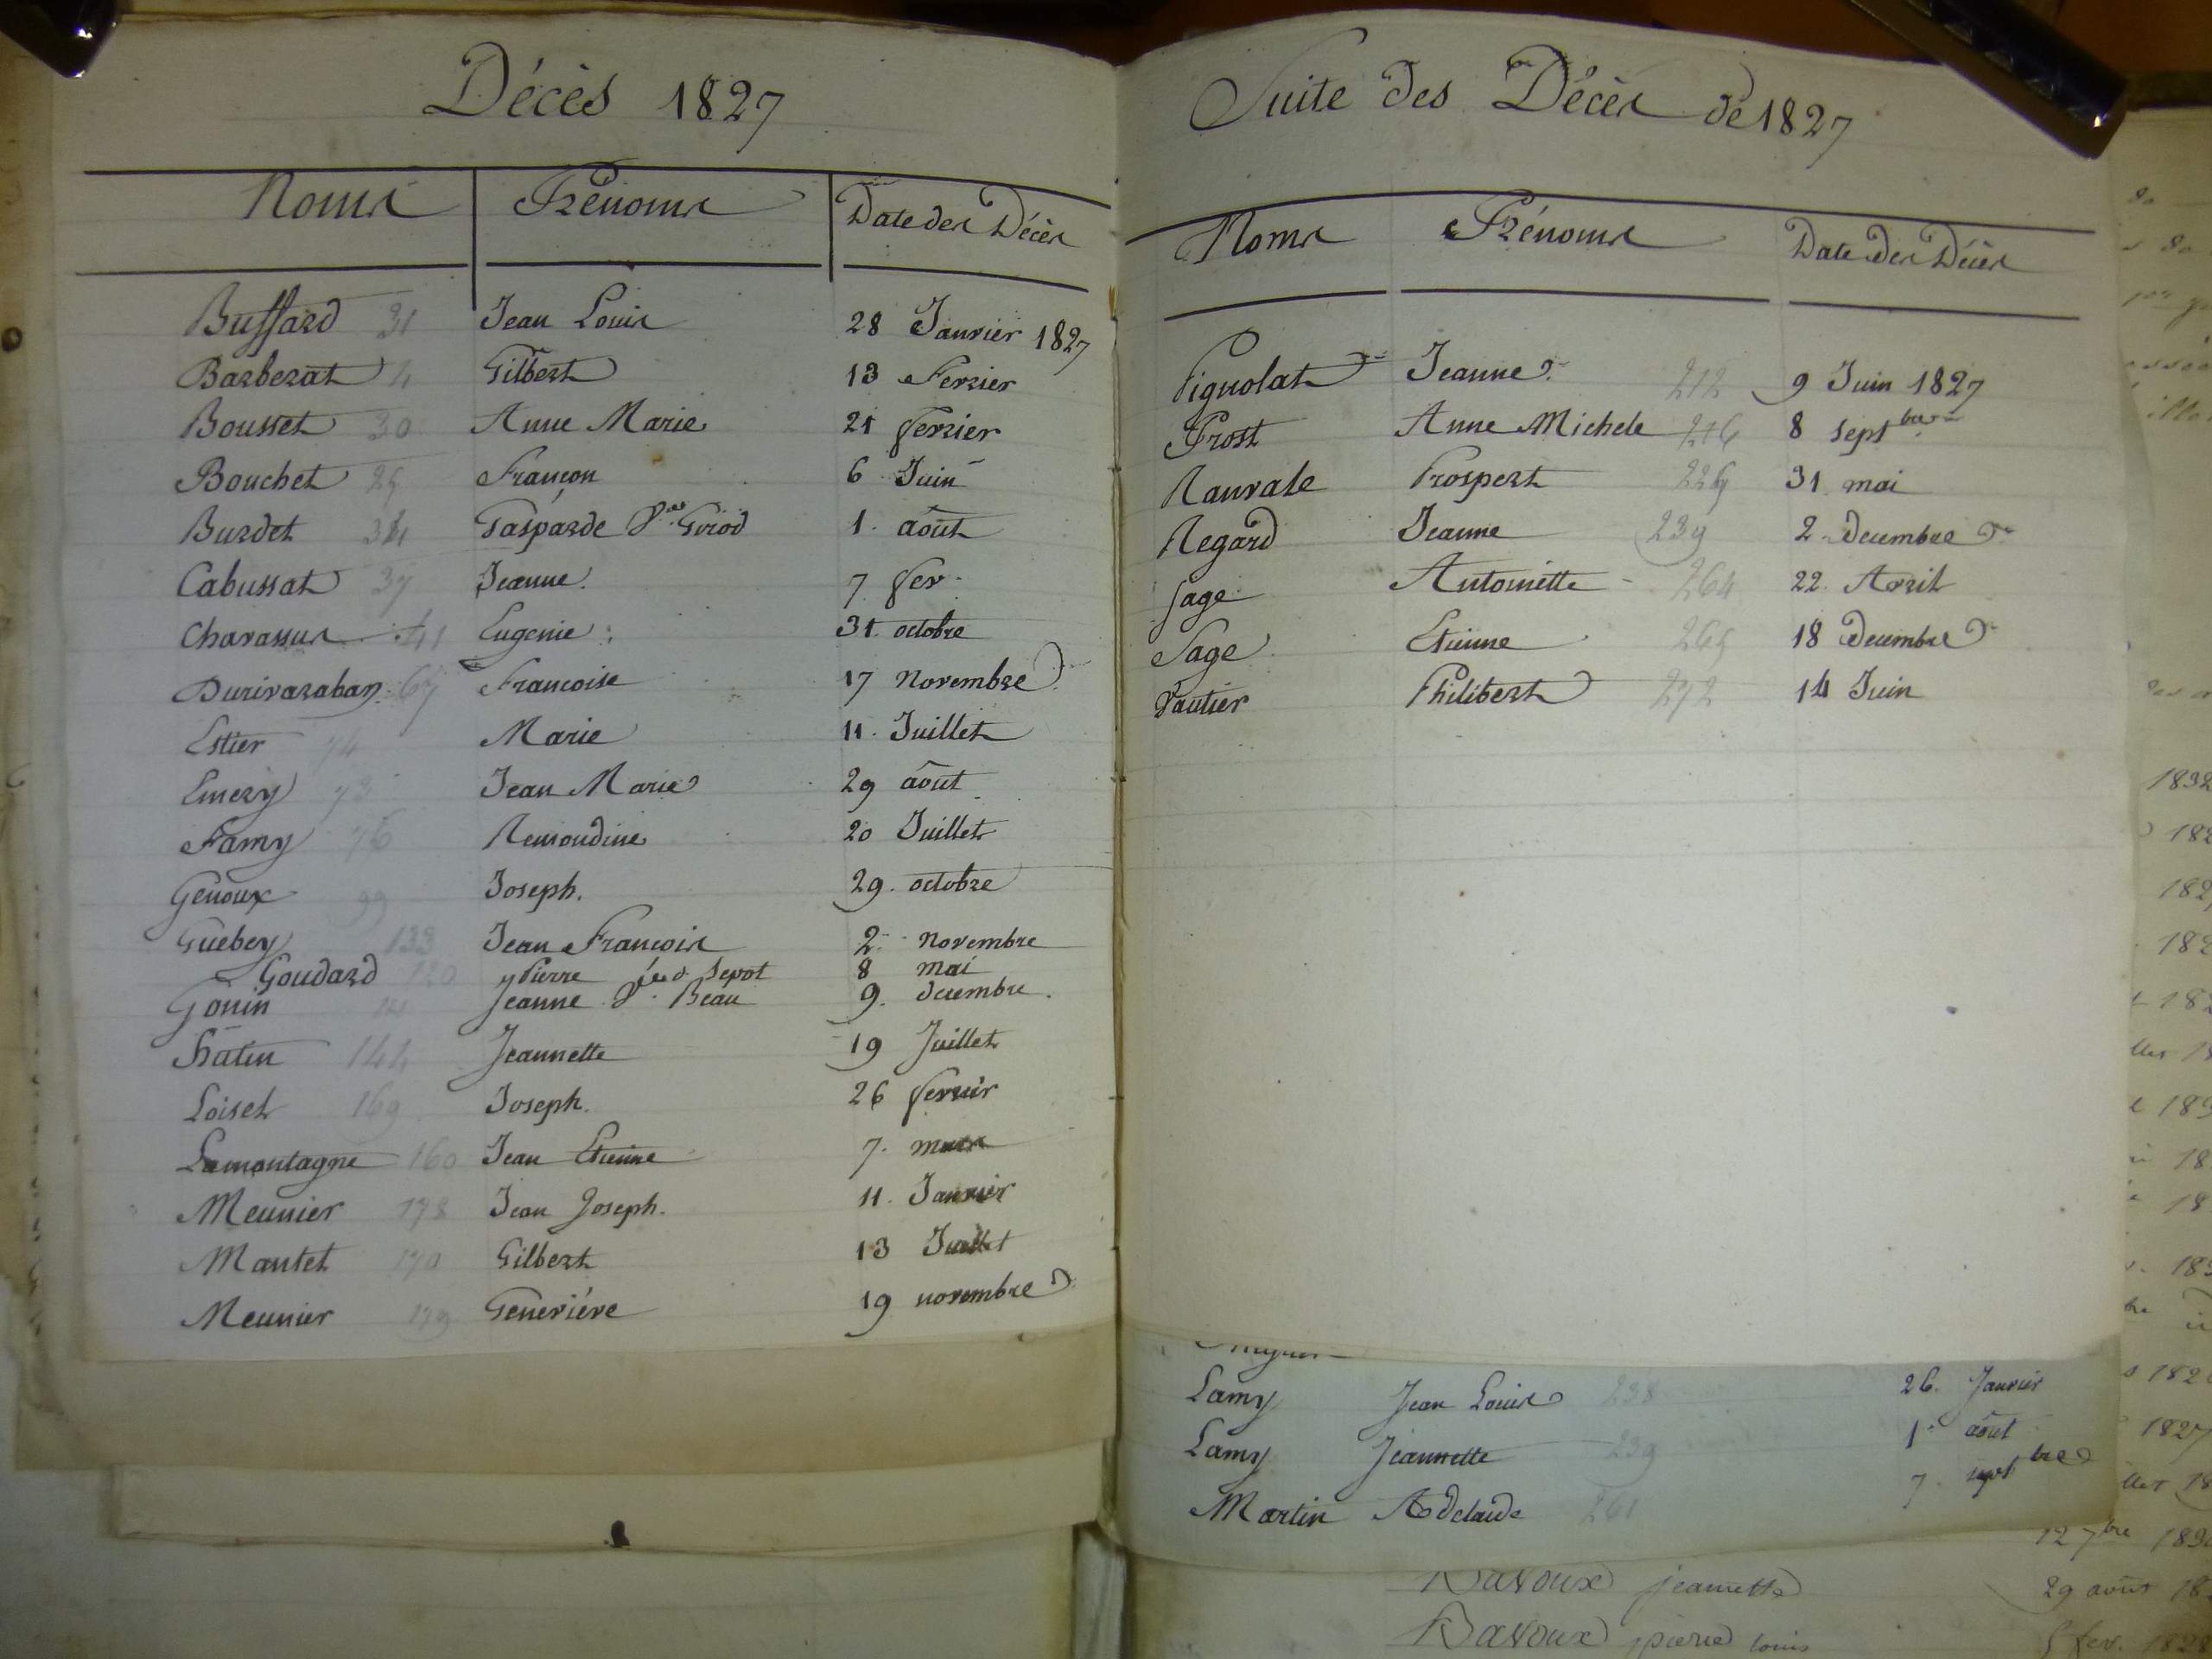 Décès 1827
Noms Prénoms Date des Décès
Buffard 31 Jean Louis 28 Janvier 1827
Barberat 4 Gilbert 13 Fevrier
Bousset 30 Anne Marie 21 fevrier
Bouchet 25 Françon 6 Juin
Burdet 34 Gasparde Ve Girod 1. août
Cabussat 37 Jeanne. 7 fev.
Chavassus 41 Eugenie 31. octobre
Durivaraban 67 Francoise 17 Novembre
Estier 74 Marie 11. Juillet
Emery 73 Jean Marie 29 août
Famy 76 Remondine 20 Juillet
Genoux 99 Joseph. 29. octobre
Guebey 133 Jean François 2. novembre
Goudard 120 Pierre 8 mai
Gonin Jeanne Ve Beau 9. decembre.
hatin 144 Jeannette 19 Juillet
Loiset 169 Joseph. 26 fevrier
Lamontagne 160 Jean Etienne 7. mars
Meunier 178 Jean Joseph. 11. Janvier
Mantet 170 Gilbert 13 Juillet
Meunier 179 Geneviéve 19 novembre
Suite des Décès de 1827
Noms Prénoms Date des Décès
Pignolat Jeanne 212 9 Juin 1827
Prost Anne Michele 216 8 septbre
Prospert 226 31 mai
Regard Jeanne 239 2. Decembre
Sage Antoinette 264 22. Avril
Sage Etienne 265 18 decembre
Vautier Philibert 272 14 Juin
Lamy Jean Louis 238 26. Janvier
Lamy Jeannette 239 1er août
Martin Adelaide 261 7. septbre
12 7bre 183
Bavoux jeannette 29 août 18
Bavoux pierre louis 5 fev. 1828
1832
182
182
182
182
183
18
18
183
182
1827
18